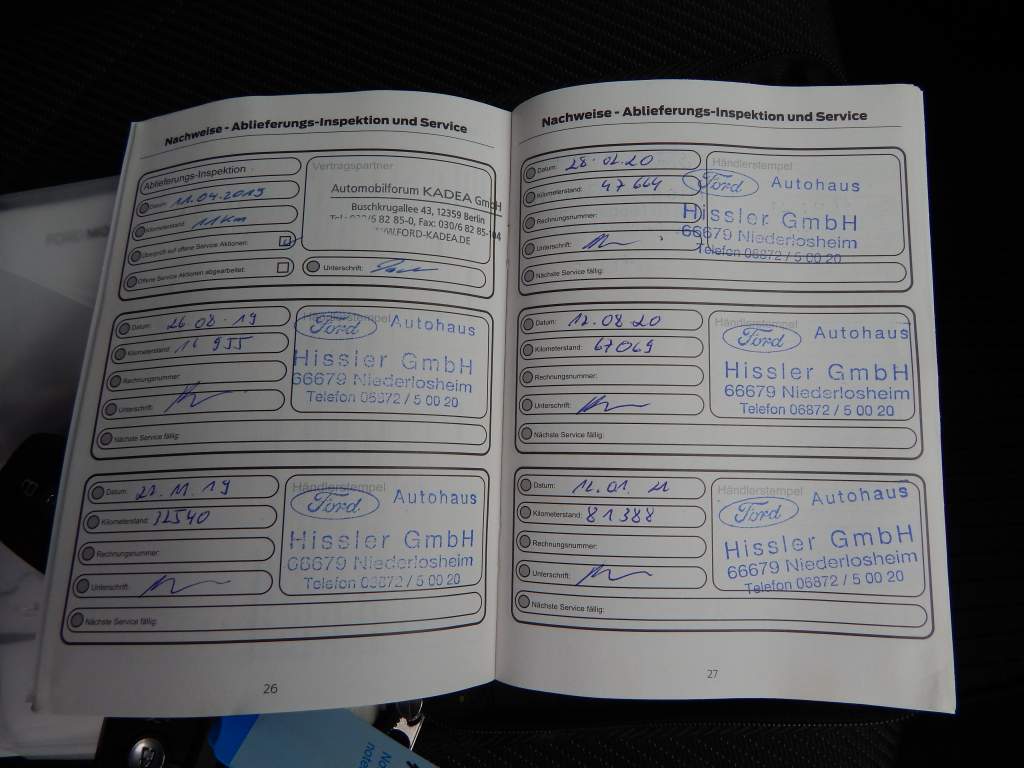 Nachweise - Ablieferungs-Inspektion und Service
Ablieferungs-Inspektion
Datum: 11.04.2019
Kilometerstand: 11 Km
Überprüft auf offene Service Aktionen:
Offene Service Aktionen abgearbeitet:
Vertragspartner
Automobilforum KADEA GmbH
Buschkrugallee 43, 12359 Berlin
Tel.: 030/6 82 85-0, Fax: 030/6 82 85-104
www.FORD-KADEA.DE
Unterschrift:
Datum: 26.08.19
Kilometerstand: 16 955
Rechnungsnummer:
Unterschrift:
Nächste Service fällig:
Händlerstempel
Ford Autohaus
Hissler GmbH
66679 Niederlosheim
Telefon 06872 / 5 00 20
Datum: 21.11.19
Kilometerstand: 32540
Rechnungsnummer:
Unterschrift:
Nächste Service fällig:
Händlerstempel
Ford Autohaus
Hissler GmbH
66679 Niederlosheim
Telefon 06872 / 5 00 20
26
Nachweise - Ablieferungs-Inspektion und Service
Datum: 28.02.20
Kilometerstand: 47664
Rechnungsnummer:
Unterschrift:
Nächste Service fällig:
Händlerstempel
Ford Autohaus
Hissler GmbH
66679 Niederlosheim
Telefon 06872 / 5 00 20
Datum: 12.08.20
Kilometerstand: 67069
Rechnungsnummer:
Unterschrift:
Nächste Service fällig:
Händlerstempel
Ford Autohaus
Hissler GmbH
66679 Niederlosheim
Telefon 06872 / 5 00 20
Datum: 12.01.21
Kilometerstand: 81388
Rechnungsnummer:
Unterschrift:
Nächste Service fällig:
Händlerstempel
Ford Autohaus
Hissler GmbH
66679 Niederlosheim
Telefon 06872 / 5 00 20
27